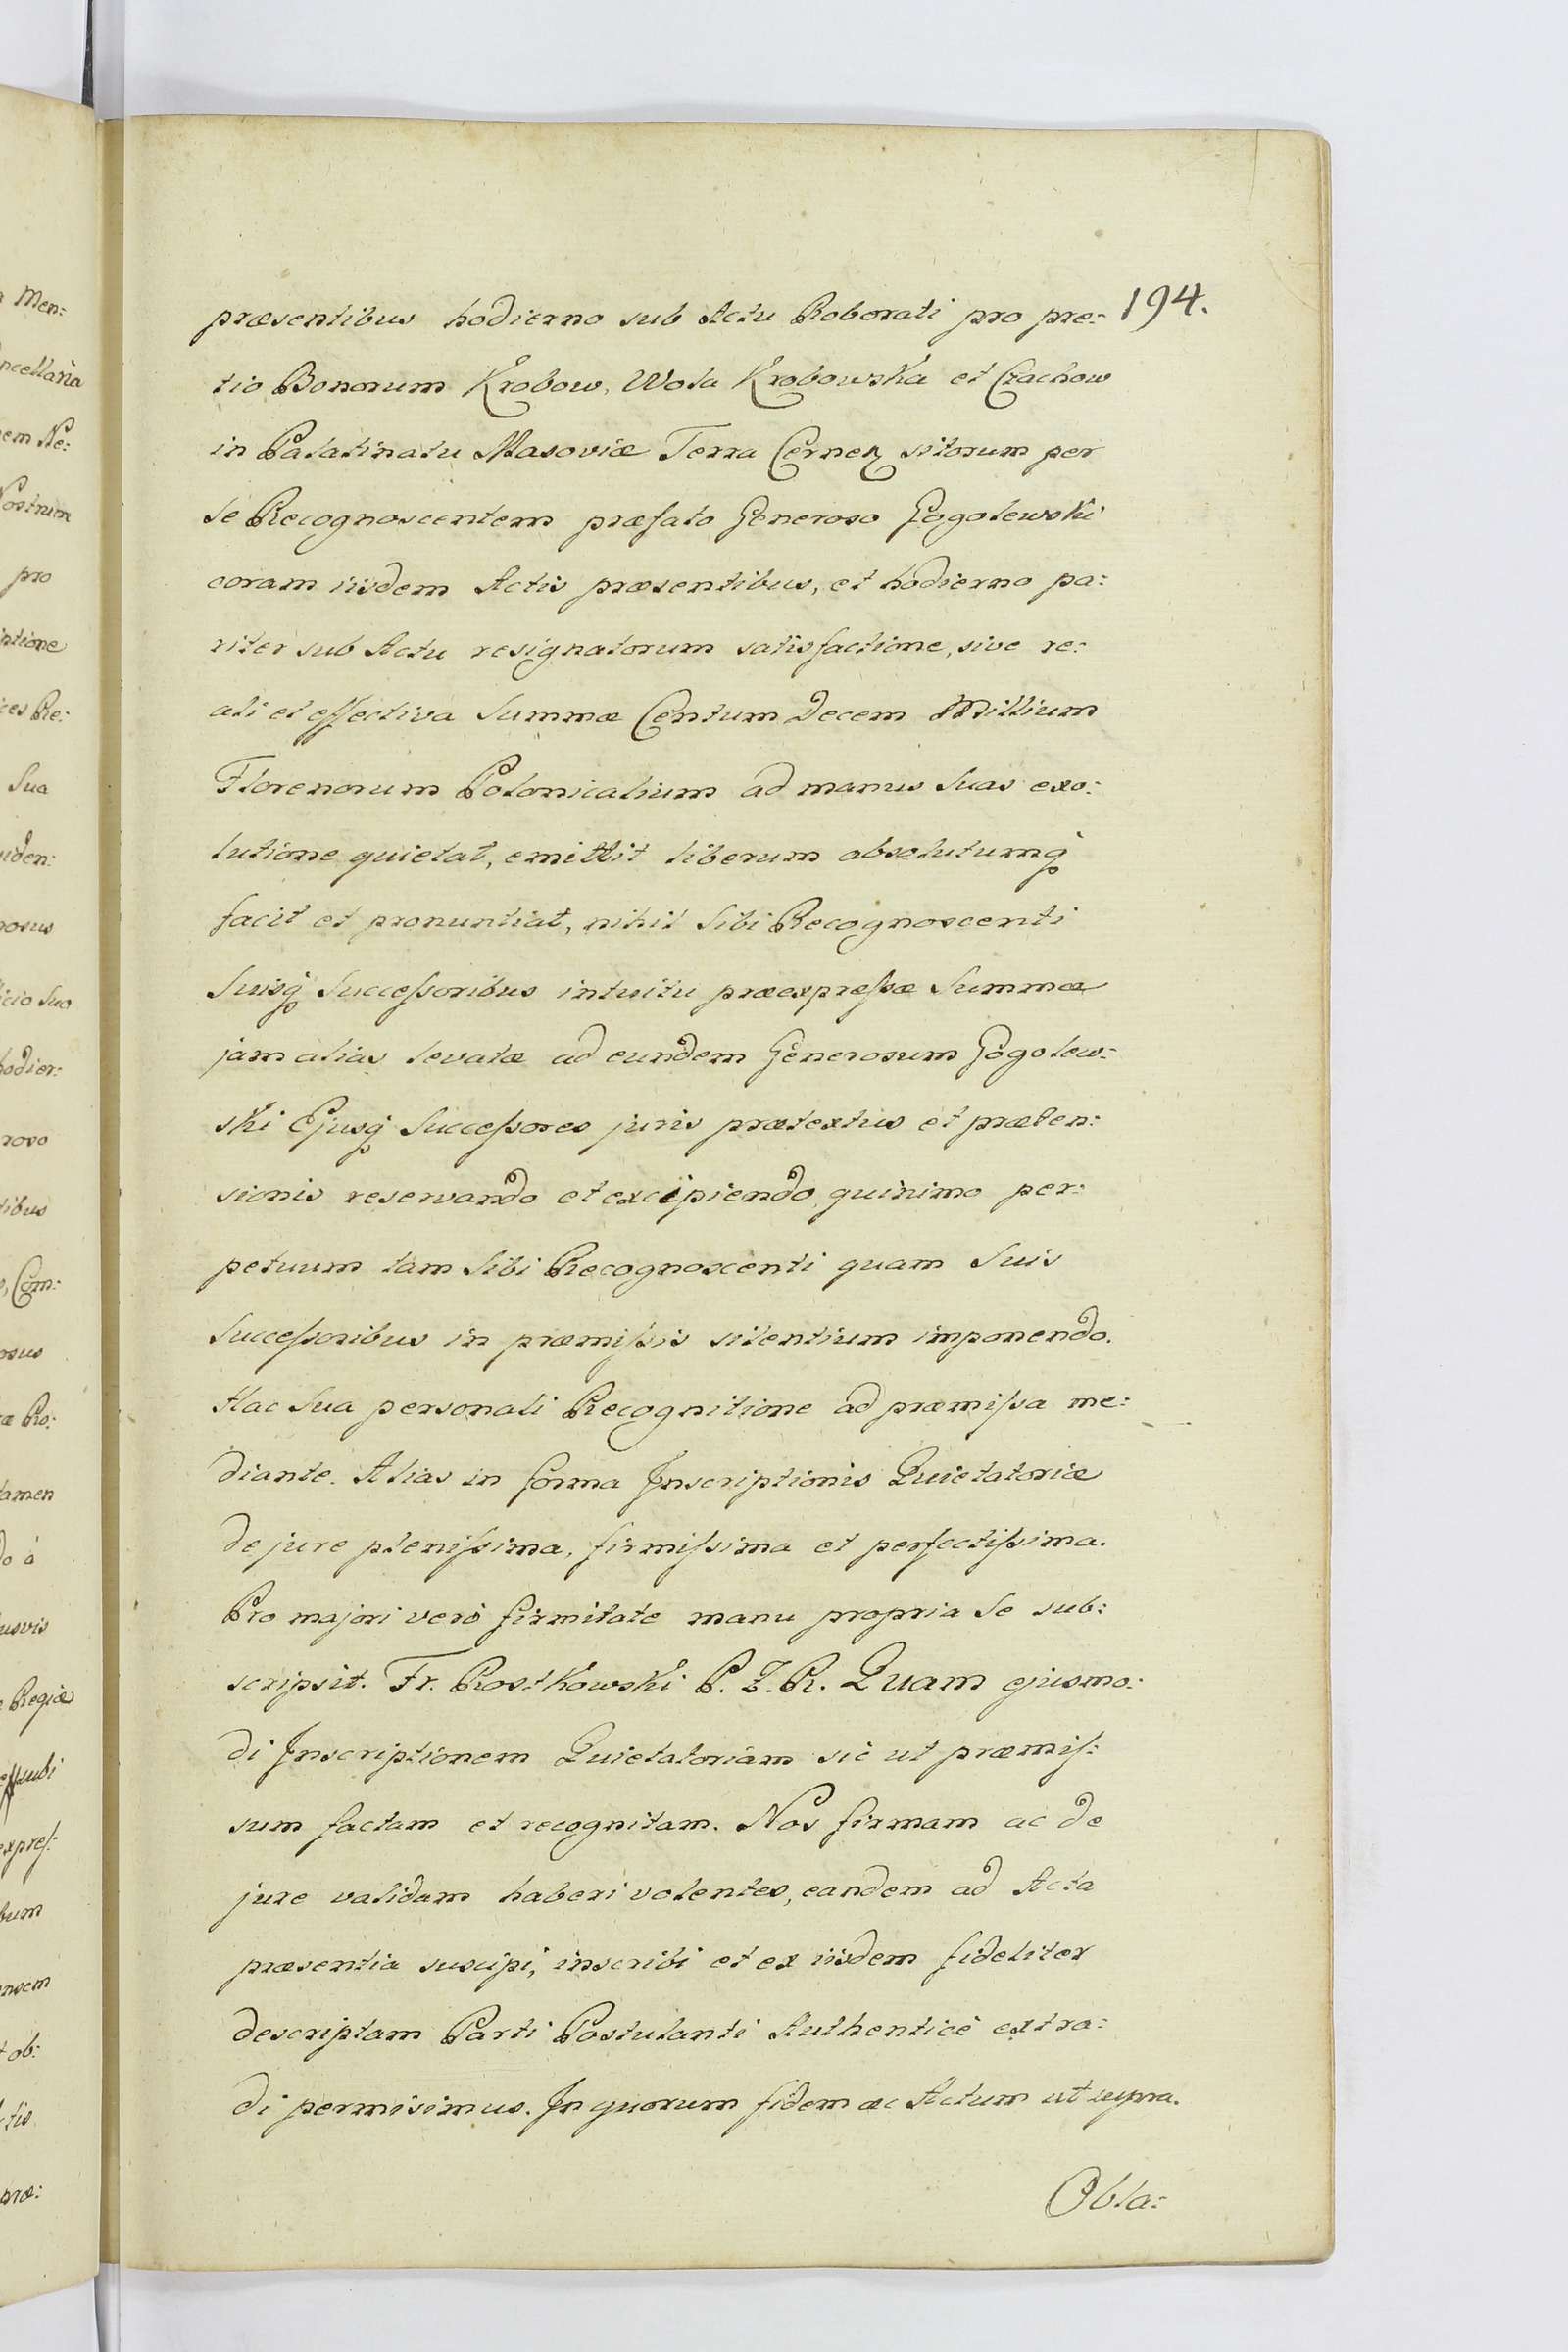 194.
præsentibus hodierno sub Actu Roborati pro pre:
tio Bonorum Krobow, Wola Krobowska et Czachow
in Palatinatu Masoviæ Terra Cernen sitorum per
se Recognoscentem præfato Generoso Gogolewski
coram iisdem Actis præsentibus, et hodierno pa:
riter sub Actu resignatorum satisfactione, sive re:
ali et effectiva Summæ Centum Decem Millium
Florenorum Polonicalium ad manus Suas exo:
lutione quietat, emittit liberum absolutumq
facit et pronuntiat, nihil Sibi Recognoscenti
Suisq Successoribus intuitu præexpressæ Summæ
jam alias levatæ ad eundem Generosum Gogolew:
ski Ejusq Successores juris prætextus et præten:
sionis reservando et excipiendo, quinimo per:
petuum tam Sibi Recognoscenti quam Suis
Successoribus in præmissis silentium imponendo.
Hac Sua personali Recognitione ad præmissa me:
diante. Alias in forma Inscriptionis Quietatoriæ
de jure plenissima, firmissima et perfectissima.
Pro majori verò firmitate manu propria Se sub:
scripsit. Fr. Rostkowski P. Z. R. Quam ejusmo:
di Inscriptionem Quietatoriam sic ut præmis:
sum factam et recognitam. Nos firmam ac de
jure validam haberi volentes, eandem ad Acta
præsentia suscipi, inscribi et ex iisdem fideliter
descriptam Parti Postulanti Authenticè extra:
di permisimus. In quorum fidem ac Actum ut supra.
Obla:
Men:
pro
Sua
Com:
Regiæ
ob: